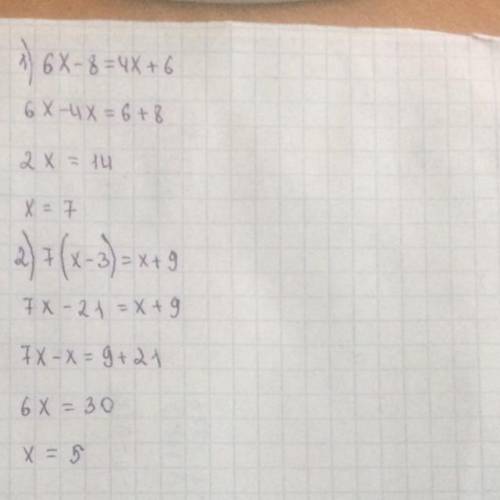 1) 6x-8=4x+6
6x-4x=6+8
2x = 14
x = 7
2) 7(x-3)=x+9
7x-21=x+9
7x-x=9+21
6x=30
x = 5